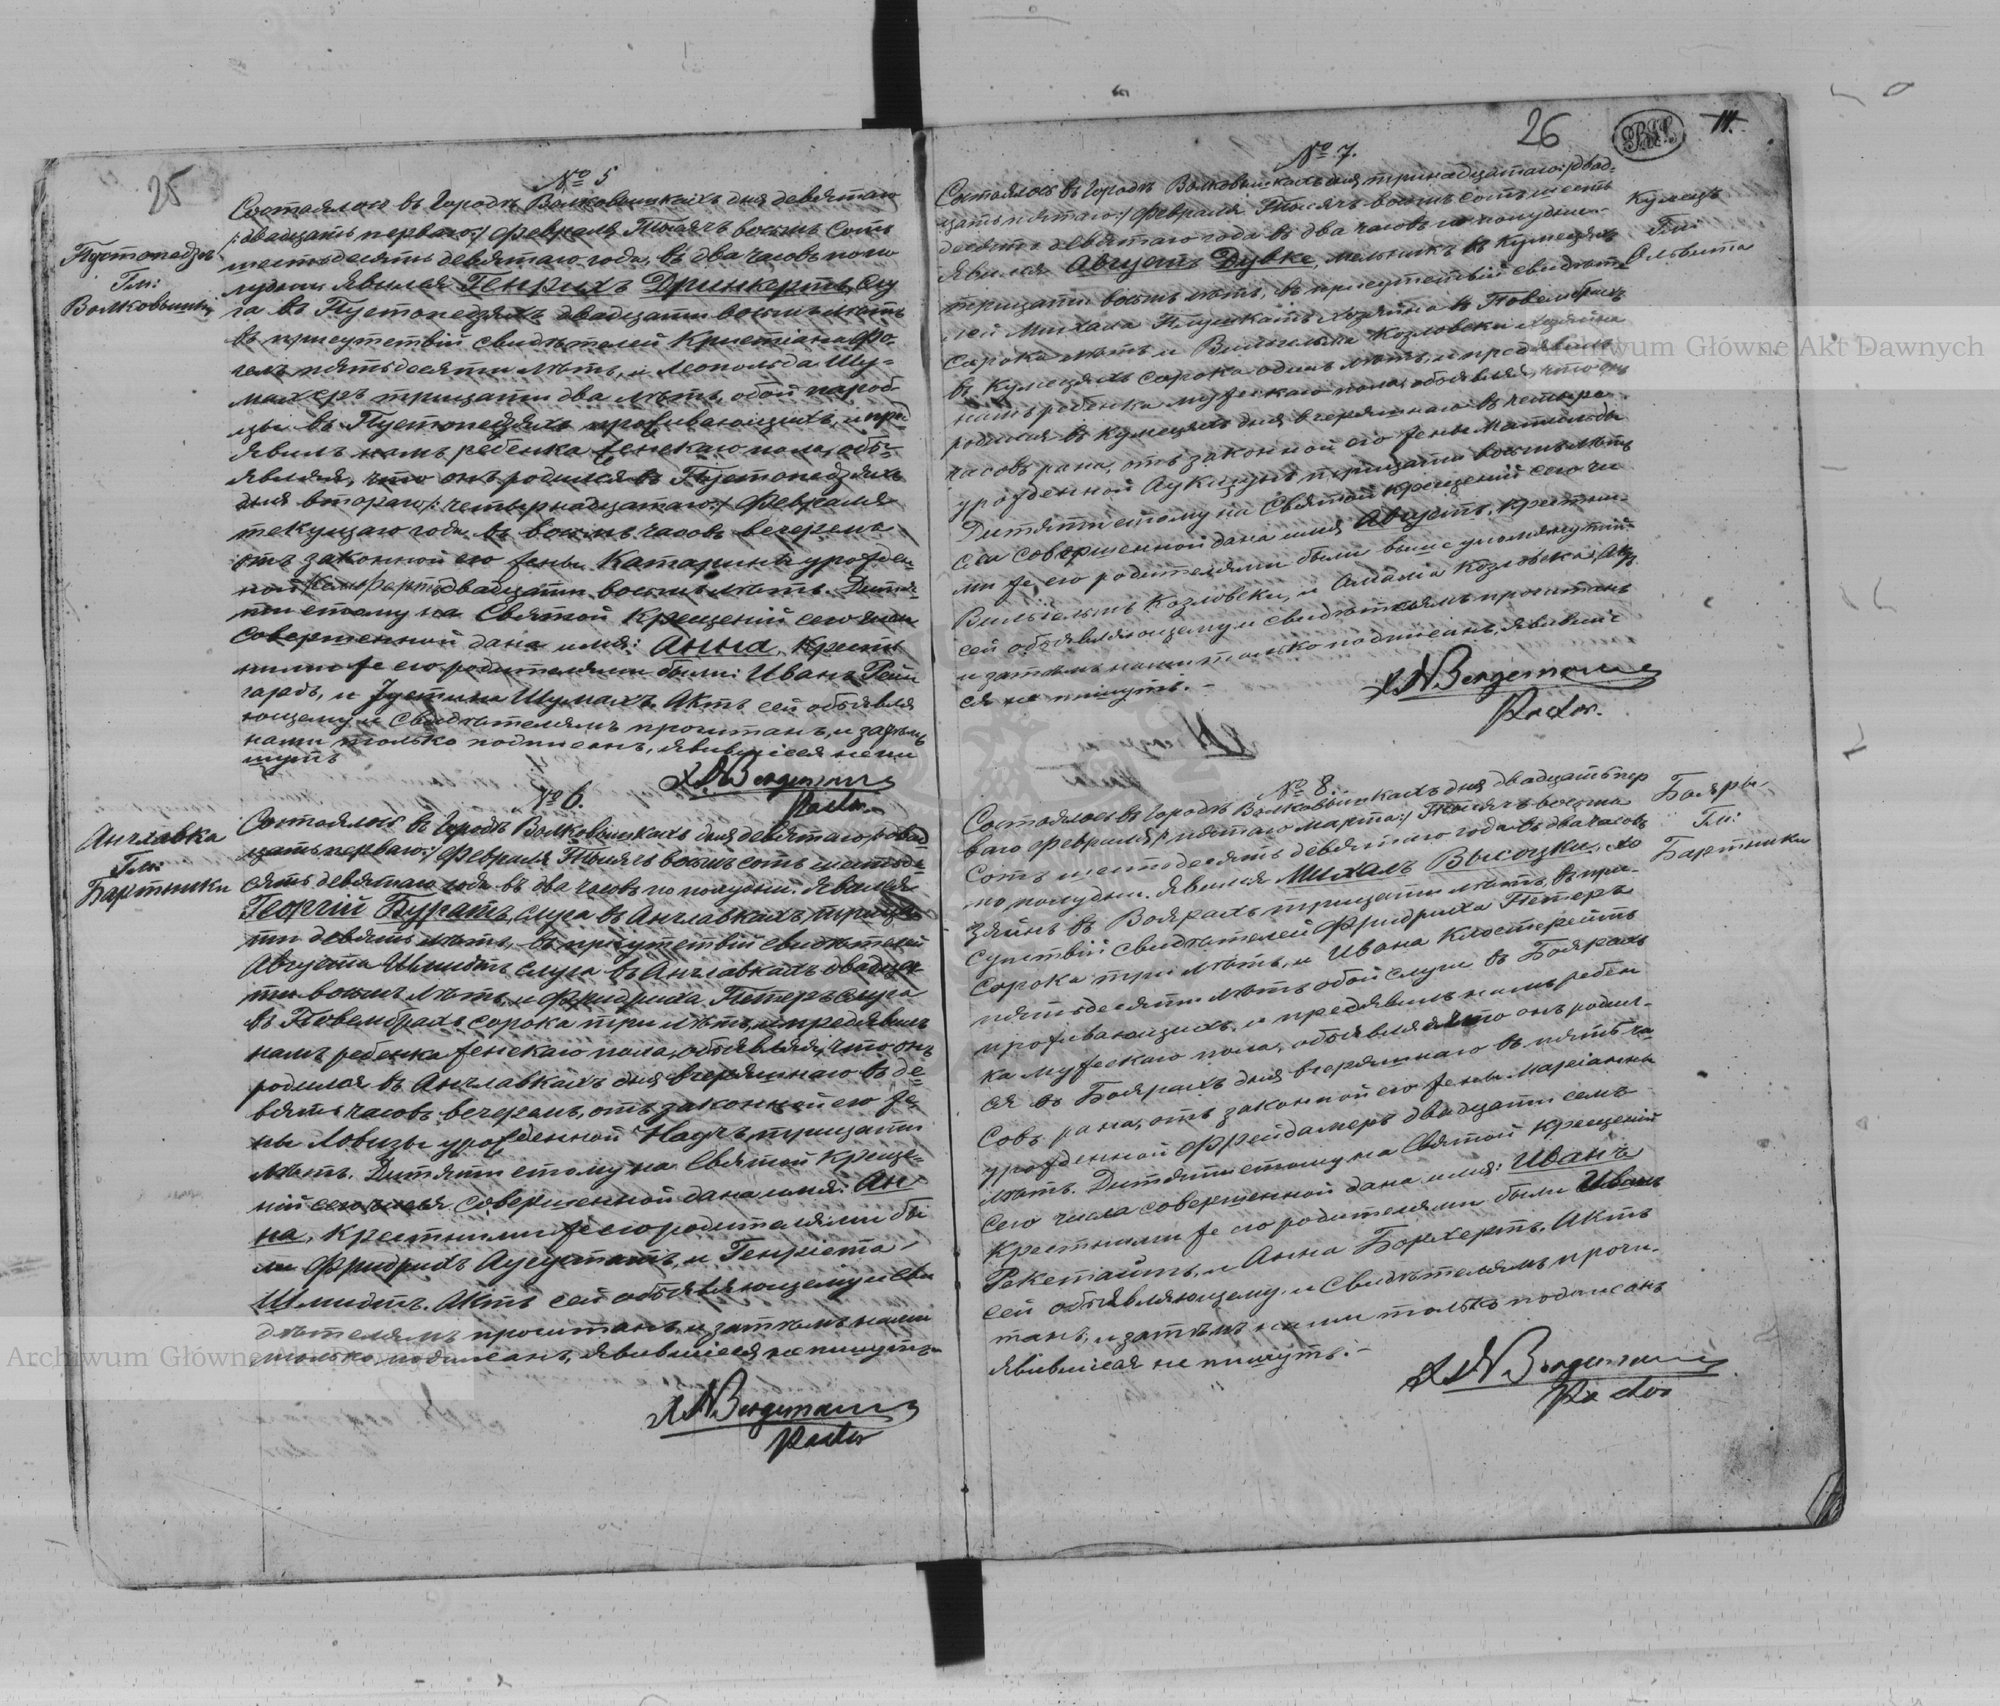 25
№ 5
Пустопедзе
Гм:
Волковышки
Состоялось въ Городѣ Волковышкахъ дня девятаго
/:двадцать перваго:/ Февраля Тысяча восемь Сотъ
шестьдесятъ девятаго года, въ два часовъ попо
лудни. Явился Генрихъ Дринкертъ Слу
га въ Пустопедзяхъ двадцати восемъ лѣтъ
въ присутствіи свидѣтелей Кристіана Фо-
гель пятьдесяти лѣтъ, и Леопольда Шу-
махеръ тридцати два лѣтъ, обой пароб
цы въ Пустопедзяхъ проживающихъ, и пред
явилъ намъ ребенка женскаго пола, объ-
являя, что онъ родился въ Пустопедзяхъ
дня втораго /:четырнадцатаго:/ Февраля
текущаго года въ восемь часовъ вечеромъ
отъ законной его жены Катарины урожден-
ной двадцати восемъ лѣтъ. Дитя-
ти етому на Святой Крещеній сего числа
совершенной дана имя: Анна, Крест
ными же его родителями были: Иванъ Рейн
гардъ, и Густина Шумахъ. Актъ сей объявля
ющему и свидѣтелямъ прочитанъ, и затѣмъ
нами только подписанъ, явившіеся не пи
шутъ
Bergemann
Pastor.
№ 6.
Анчлавка
Гм:
Бартники
Состоялось въ Городѣ Волковышкахъ дня девятаго /:двад
цать перваго:/ Февраля Тысяча восемь сотъ шестьде-
сятъ девятаго года въ два часовъ по полудни. Явился
Георгій Буратъ, слуга въ Анчлавкахъ, тридца
ти девять лѣтъ, въ присутствіи свидѣтелей
Августа Шмидтъ слуга въ Анчлавкахъ двадца-
ти восемъ лѣтъ, и Фридриха Петеръ слуга
въ Повембрахъ сорока три лѣтъ, и предявилъ
намъ ребенка женскаго пола, объявляя, что онъ
родился въ Анчлавкахъ дня вчерашнаго въ де-
вять часовъ вечеромъ, отъ законной его же-
ны Ловизы урожденной Научъ, тридцати
лѣтъ. Дитяти етому на Святой Креще-
ній сего числа совершенной дана имя: Ан-
на, Крестными же его родителями бы
ли Фридрихъ Аугустатъ, и Генріета
Шмидтъ. Актъ сей объявляющему и сви
дѣтелямъ прочитанъ, и затѣмъ нами
только подписанъ, явившіеся не пишутъ
Bergemann
Pastor
26
№ 7.
Кумецъ
Гм:
Ольвита
Состоялось въ Городѣ Волковышкахъ дня тринадцатаго /:двад-
цать пятаго:/ Февраля Тысяча восемь сотъ шесть
десятъ девятаго года въ два часовъ по полудни.
Явился Августъ Дувке, мельникъ въ Кумецяхъ
тридцати восемь лѣтъ, въ присутствій свидѣте
лей Михала Плушкатъ хозяина въ Повембрахъ
сорока лѣтъ и Вильгельма Козловски хозяина
въ Кумецяхъ сорока одинъ лѣтъ, и предявилъ
намъ ребенка мужескаго пола, объявляя, что онъ
родился въ Кумецяхъ дня вчерашнаго въ четыре
часовъ рана, отъ законной его жены Матильды
урожденной Аукщунъ, тридцати восемь лѣтъ
Дитяти етому на Святой Крещеній сего чи
сла совершенной дана имя Августъ, крестны-
ми же его родителями были выше упомянутый
Вильгельмъ Козловски, и Амалія Козловска, Актъ
сей объявляющему и свидѣтелямъ прочитанъ
и затѣмъ нами только подписанъ, явившіе
ся не пишутъ. -
Bergemann
Pastor.
№ 8.
Бояры
Гм:
Бартники
Состоялось въ Городѣ Волковышкахъ дня двадцать пер
ваго Февраля /:пятаго Марта:/ Тысяча восемь
Сотъ шестьдесятъ девятаго года въ два часовъ
по полудни. Явился Михалъ Высоцки, хо
зяинъ въ Боярахъ тридцати лѣтъ, въ при-
сутствіи свидѣтелей Фридриха Петеръ
сорока три лѣтъ, и Ивана Клостерейтъ
пятьдесяти лѣтъ обой слуги въ Боярахъ
проживающихъ, и предявилъ намъ ребен
ка мужескаго пола, объявляя что онъ родил-
ся въ Боярахъ дня вчерашнаго въ пять ча-
совъ рана, отъ законной его жены Маріанны
урожденной Фрейдамеръ двадцати семь
лѣтъ. Дитяти етому на Святой Крещеній
сего числа совершенной дана имя: Иванъ
Крестными же его родителями были Иванъ
Рекетайтъ, и Анна Борхертъ. Актъ
сей объявляющему и свидѣтелямъ прочи-
танъ, и затѣмъ нами только подписанъ
явившіеся не пишутъ. -
Bergemann
Pastor
Archiwum Główne Akt Dawnych
Archiwum Główne Akt Dawnych